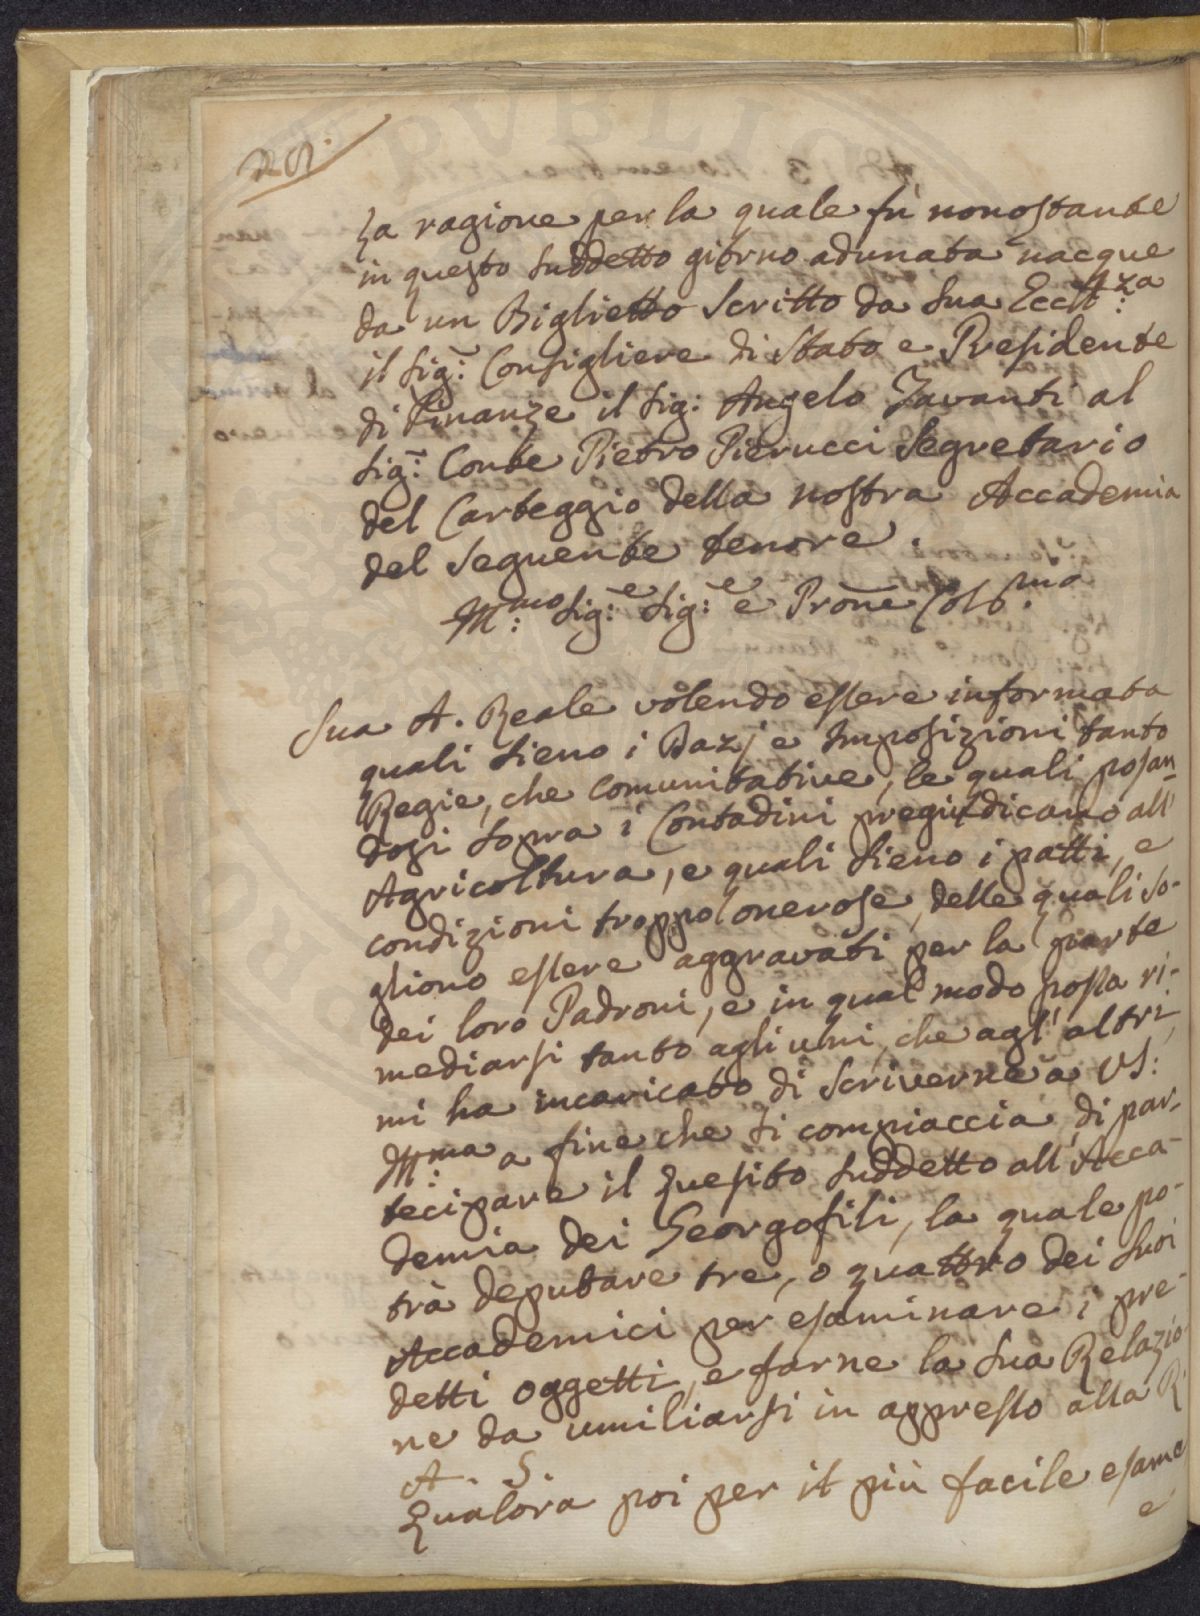 La ragione per la quale fù nonostante
in questo suddetto giorno adunata nacque
da un Biglietto Scritto da Sua Ecc:za
il Sig:r Consigliere di Stato e Presidente
di Finanze il Sig: Angelo Tavanti al
Sig:r Conte Pietro Pierucci Segretario
del Carteggio della nostra Accademia
del Seguente tenore.
Ill:mo Sig:re Sig:re e Prone Colo:mo
Sua A. Reale volendo essere informata
quali sieno i Dazj e Imposizioni tanto
Regie, che comunitative, le quali posan=
dosi sopra i Contadini pregiudicano all'
Agricoltura, e quali sieno i patti, e
condizioni troppo onerose, delle quali so-
gliono essere aggravati per la parte
dei loro Padroni, e in qual modo possa ri-
mediarsi tanto agli uni, che agl'altri,
mi ha incaricato di scriverne a VS:
Ill:ma a fine che si compiaccia di par-
tecipare il Quesito suddetto all'Acca-
demia dei Georgofili, la quale po-
trà deputare tre, o quattro dei suoi
Accademici per esaminare i pre-
detti oggetti, e farne la sua Relazio-
ne da umiliarsi in appresso alla R.
A. S.
Qualora poi per il più facile esame
e